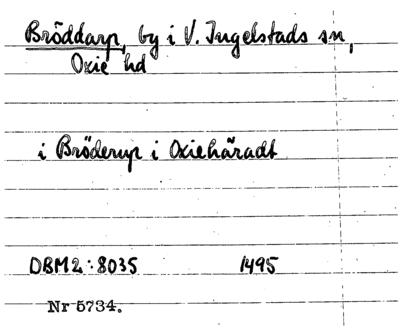 Bröddarp, by i V. Ingelstads sn,
Oxie hd
i Bröderup i Oxiehäradt
DBM2:8035 1495
Nr 5734.